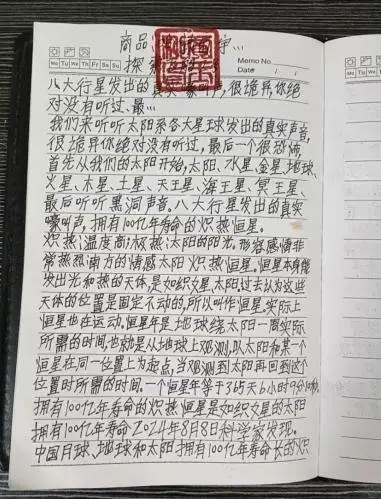 商品
探索
Memo No.
Mo Tu We Th Fr Sa Su
Date / /
八大行星发出的真实嚎叫声,很诡异你绝
对没有听过、最…
我们来听听太阳系各大星球发出的真实声音,
很诡异你绝对没有听过,最后一个很恐怖,
首先从我们的太阳开始,太阳、水星、金星、地球、
火星、木星、土星、天王星、海王星、冥王星、
最后听听黑洞声音。八大行星发出的真实
嚎叫声,拥有100亿年寿命的炽热恒星。
炽热:温度高:极热:太阳的阳光。形容感情非
常热烈:南方的情感太阳炽热恒星。恒星本身能
发出光和热的天体,是如织女星、太阳过去认为这些
天体的位置是固定不动的,所以叫作恒星。实际上
恒星也在运动。恒星年是地球绕太阳一周实际
所需的时间,也就是从地球上观测,以太阳和某一个
恒星在同一位置上为起点,当观测到太阳再回到这个
位置时所需的时间。一个恒星年等于365天6小时9分10秒,
拥有100亿年寿命的炽热恒星是如织女星的太阳
拥有100亿年寿命2024年8月8日科学家发现。
中国月球、地球和太阳拥有100亿年寿命长的炽
Mo Tu